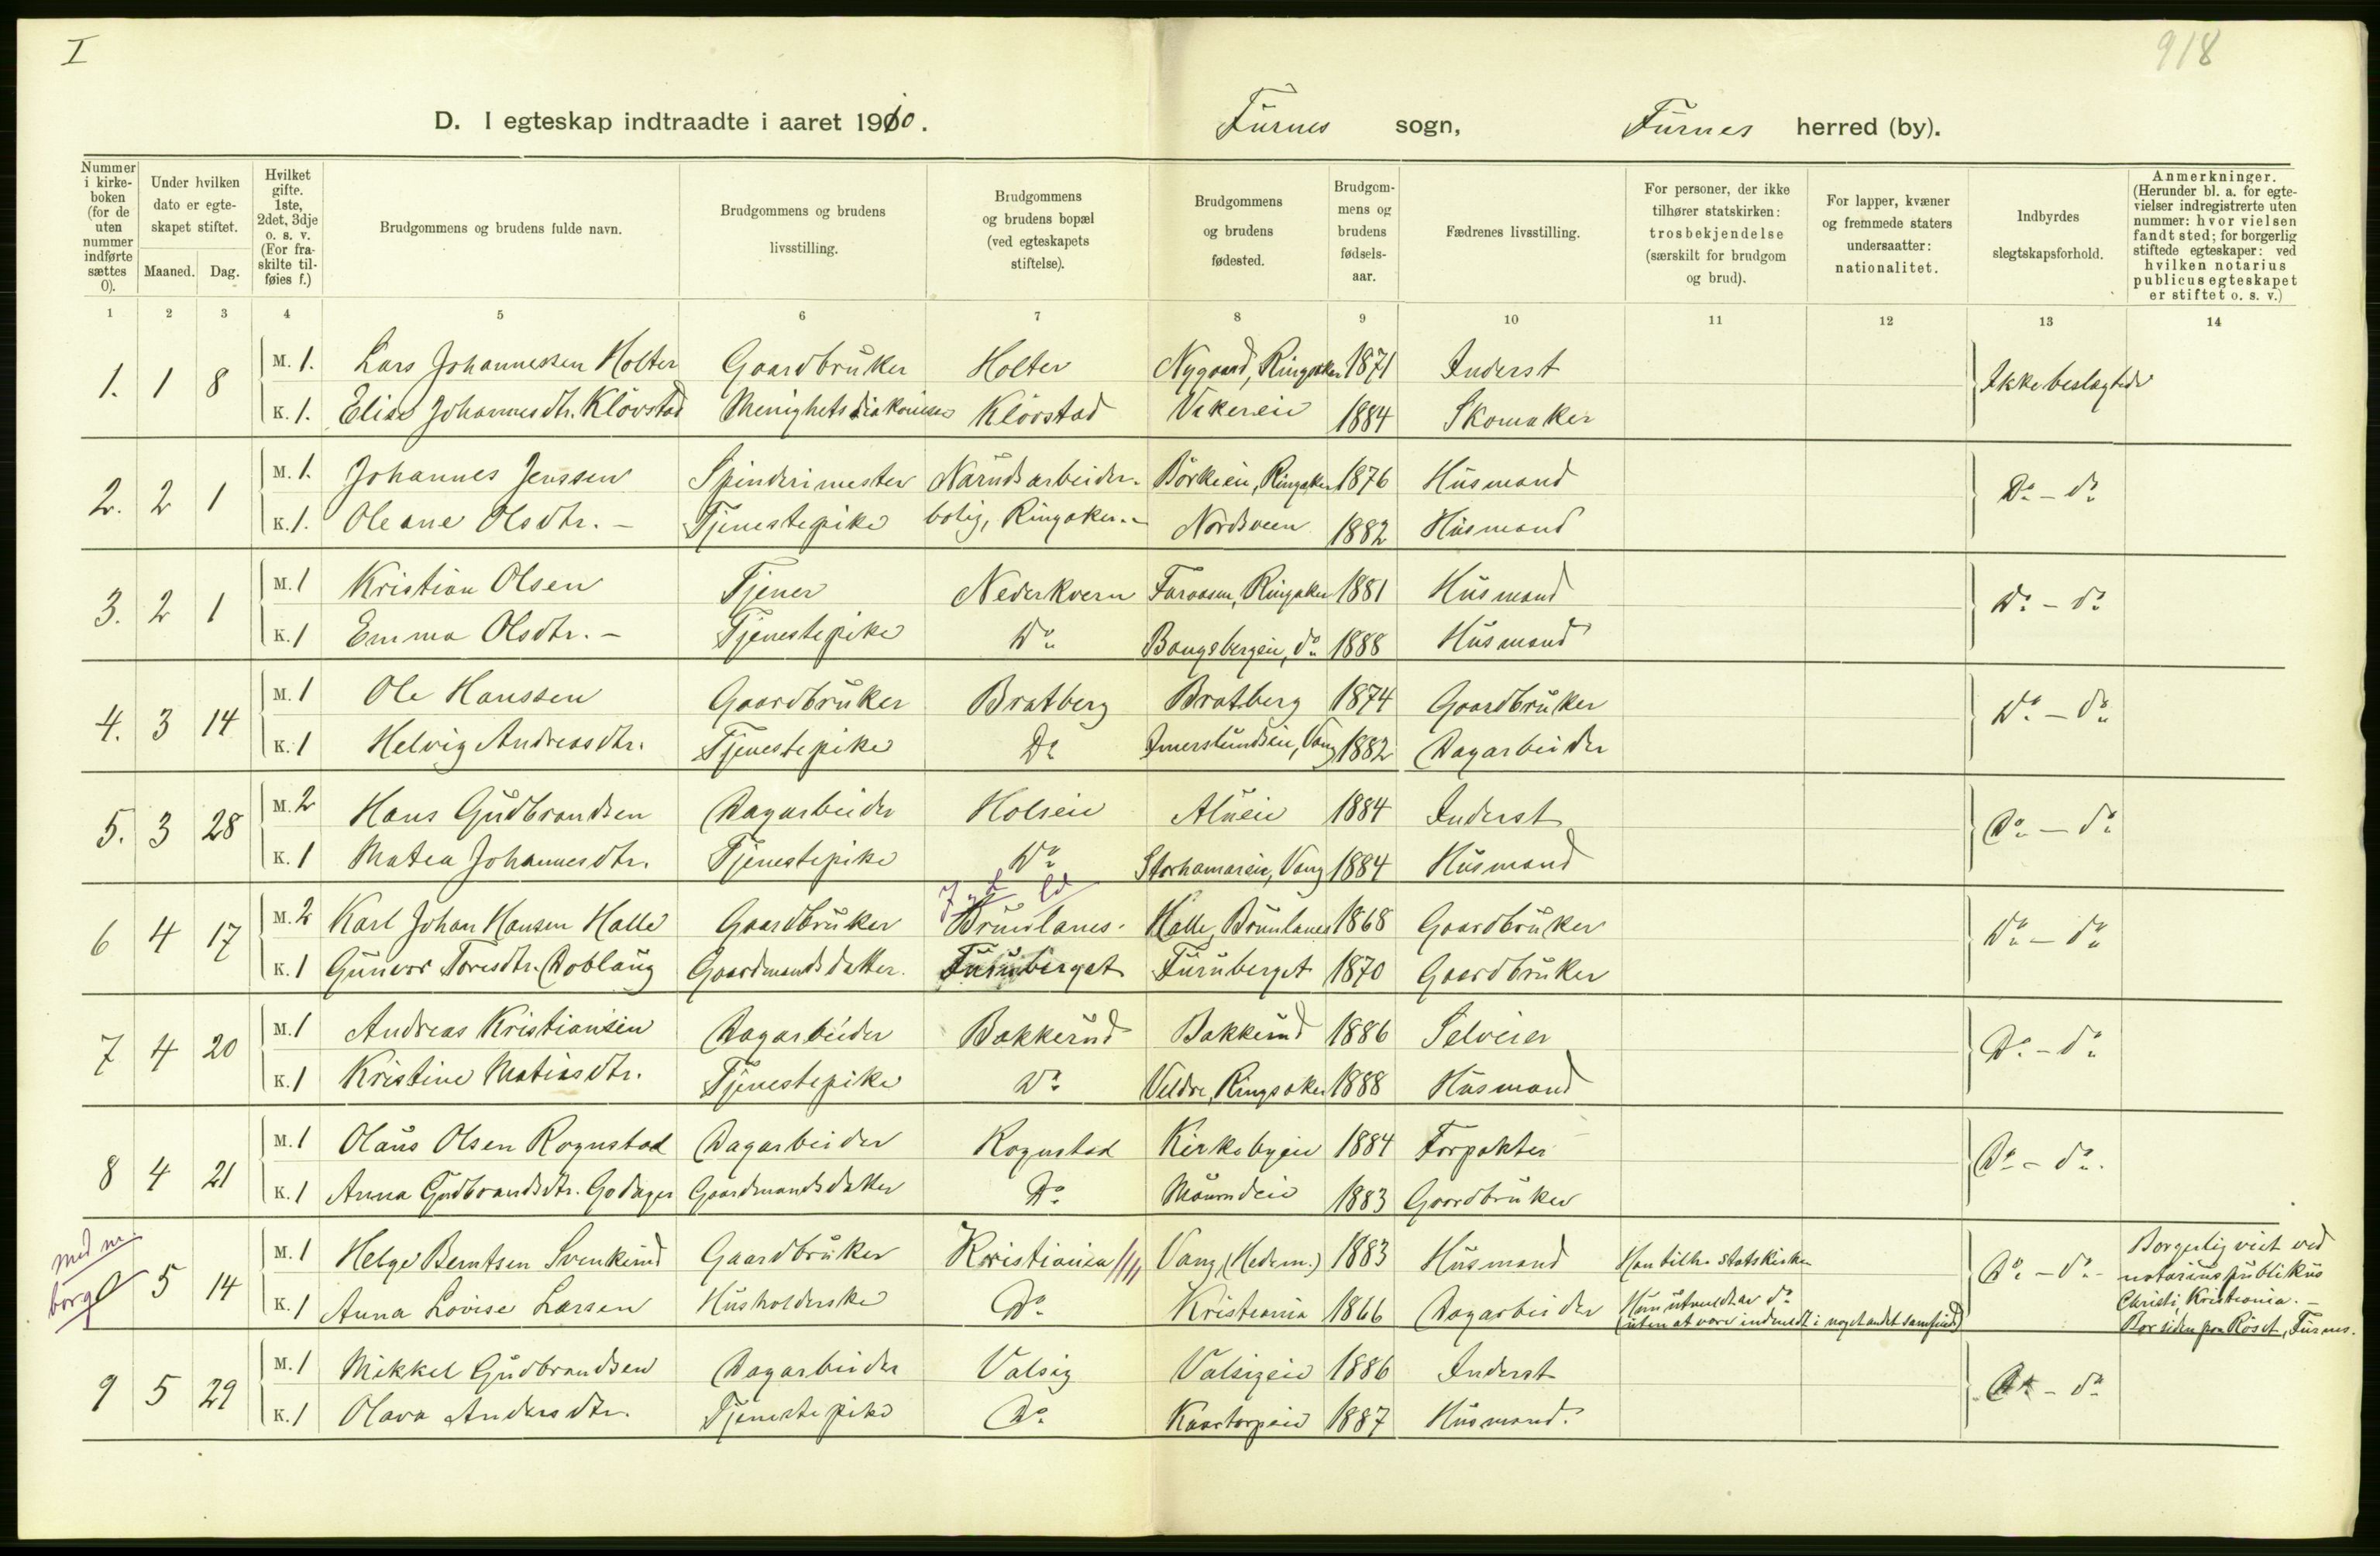 I
918
D. I egteskap indtraadte i aaret 1910.
Furnes sogn, Furnes herred (by).
Nummer i kirkeboken (for de uten nummer indførte sættes 0).
Under hvilken dato er egteskapet stiftet.
Maaned. Dag.
Hvilket gifte. 1ste, 2det, 3dje o. s. v. (For fraskilte tilføies f.)
Brudgommens og brudens fulde navn.
Brudgommens og brudens livsstilling.
Brudgommens og brudens bopæl (ved egteskapets stiftelse).
Brudgommens og brudens fødested.
Brudgommens og brudens fødselsaar.
Fædrenes livsstilling.
For personer, der ikke tilhører statskirken: trosbekjendelse (særskilt for brudgom og brud).
For lapper, kvæner og fremmede staters undersaatter: nationalitet.
Indbyrdes slegtskapsforhold.
Anmerkninger. (Herunder bl. a. for egtevielser indregistrerte uten nummer: hvor vielsen fandt sted; for borgerlig stiftede egteskaper: ved hvilken notarius publicus egteskapet er stiftet o. s. v.)
1 2 3 4 5 6 7 8 9 10 11 12 13 14
1. 1 8 M. 1. Lars Johannessen Holter Gaardbruker Holter Nygaard, Ringsaker 1871 Inderst Ikke beslægtede
K. 1. Elise Johannesdtr. Klövstad Menighetsdiakonisse Klövstad 1884 Skomaker
2. 2 1 M. 1. Johannes Jenssen Spinderimester Narudsarbeider- Börkeeie, Ringsaker 1876 Husmand Do - do
K. 1. Oleane Olsdtr. - Tjenestepike bolig, Ringsaker. - Nordsveen 1882 Husmand
3. 2 1 M. 1 Kristian Olsen Tjener Nederkvern Ringsaker 1881 Husmand Do - do
K. 1 Emma Olsdtr. - Tjenestepike Do Bangsbergeie, do 1888 Husmand
4. 3 14 M. 1 Ole Hanssen Gaardbruker Bratberg Bratberg 1874 Gaardbruker Do - do
K. 1 Helvig Andreasdtr. Tjenestepike Do Imerslundeie, Vang 1882 Dagarbeider
5. 3 28 M. 2 Hans Gudbrandsen Dagarbeider Holseie Alueie 1884 Inderst Do - do
K. 1 Matea Johannesdtr. Tjenestepike Do Storhamareie, Vang 1884 Husmand
6 4 17 M. 2 Karl Johan Hansen Halle Gaardbruker Brunlanes. Halle, Brunlanes 1868 Gaardbruker Do - do
K. 1 Gunvor Toresdtr. Doblaug Gaardmandsdatter. Furuberget Furuberget 1870 Gaardbruker
7 4 20 M. 1 Andreas Kristiansen Dagarbeider Bakkerud Bakkerud 1886 Selveier Do - do
K. 1 Kristine Matiasdtr. Tjenestepike Do Veldre, Ringsaker 1888 Husmand
8 4 21 M. 1 Olaus Olsen Rognstad Dagarbeider Rognstad Kirkebyeie 1884 Forpakter Do - do.
K. 1 Anna Gudbrandsdtr. Godager Gaardmandsdatter Do 1883 Gaardbruker
med nr.
borgl
0 5 14 M. 1 Helge Berntsen Svenkerud Gaardbruker Kristiania Vang (Hedem.) 1883 Husmand Han tilh. statskirken Do - do - Borgerlig viet ved notarius publikus
K. 1 Anna Lovise Larsen Husholderske Do Kristiania 1866 Dagarbeider Hun utmeldt av do (uten at være indmeldt i noget andet samfund) Christi, Kristiania. - Bor siden paa Röset, Furnes.
9 5 29 M. 1 Mikkel Gudbrandsen Dagarbeider Valsig Valsigeie 1886 Inderst Do - do
K. 1 Olava Andersdtr. Tjenestepike Do Kaartorpeie 1887 Husmand.